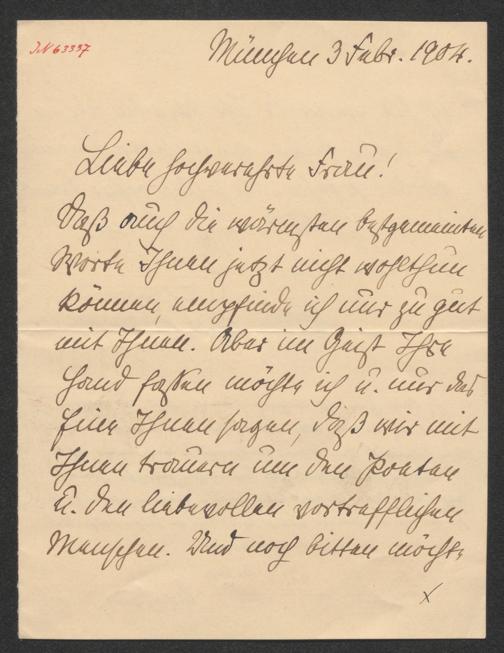 JN 63337
München 3 Febr. 1904.
Liebe hochverehrte Frau!
Daß auch die wärmsten bestgemeinten
Worte Ihnen jetzt nicht wohlthun
können, empfinde ich nur zu gut
mit Ihnen. Aber im Geist Ihre
Hand fassen möchte ich u. nur das
Eine Ihnen sagen, daß wir mit
Ihnen trauern um den Poeten
u. den liebevollen vortrefflichen
Menschen. Und noch bitten möchte
x